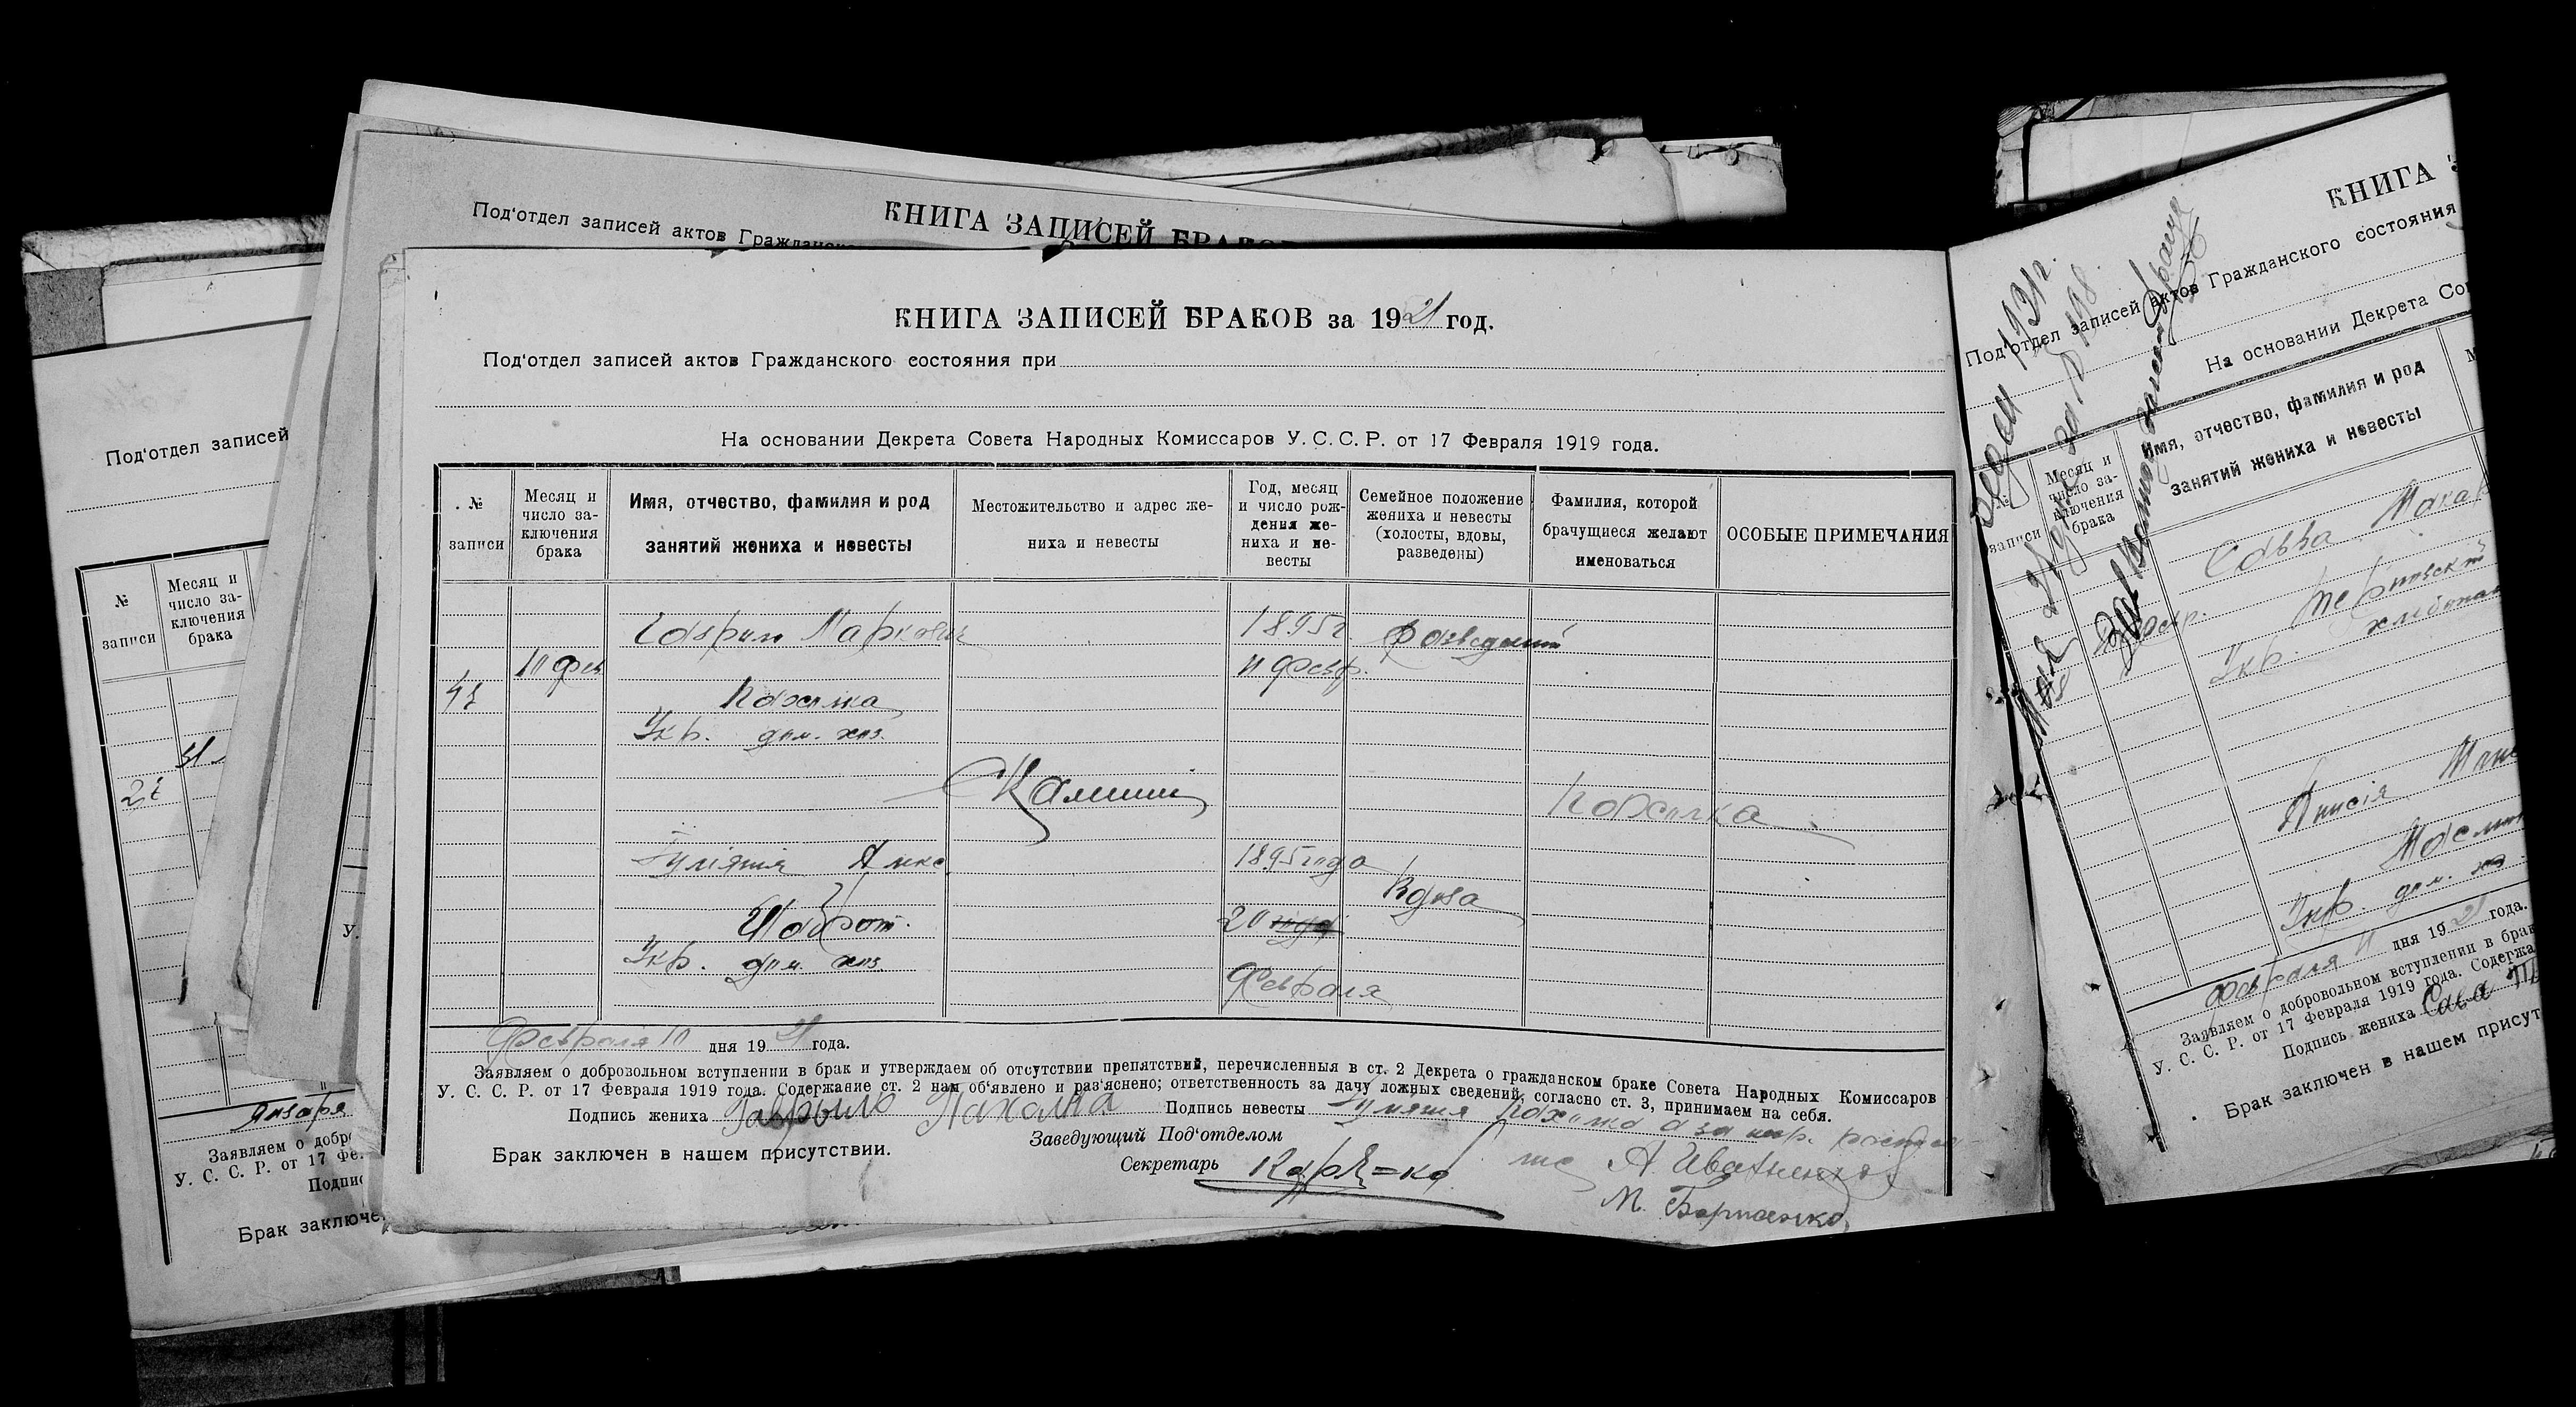 Под‘отдел записей актов Гражданско
КНИГА ЗАПИСЕЙ БРАКОВ
КНИГА ЗАПИСЕЙ БРАКОВ за 1921 год.
Под‘отдел записей актов Гражданского состояния при
На основании Декрета Совета Народных Комиссаров У. С. С. Р. от 17 Февраля 1919 года.
№ записи
Месяц и число за-ключения брака
Имя, отчество, фамилия и род занятий жениха и невесты
Местожительство и адрес же-ниха и невесты
Год, месяц и число рож-дения же-ниха и не-весты
Семейное положение жениха и невесты (холосты, вдовы, разведены)
Фамилия, которой брачущиеся желают именоваться
ОСОБЫЕ ПРИМЕЧАНИЯ
Гаврило Маркович 1895 г. разведений
10 фев 11 Февр.
Пахалка
Укр. дом. хоз.
Пахалка
Улiяния Алекс. 1895 года
Вдова
20
Укр. дом. хоз.
Февраля
Февраля 10 дня 1921 года.
Заявляем о добровольном вступлении в брак и утверждаем об отсутствии препятствий, перечисленных в ст. 2 Декрета о гражданском браке Совета Народных Комиссаров
У. С. С. Р. от 17 Февраля 1919 года. Содержание ст. 2 нам об‘явлено и раз‘яснено; ответственность за дачу ложных сведений, согласно ст. 3, принимаем на себя.
Подпись жениха Гаврыло Пахалка Подпись невесты
Заведующий Под‘отделом
Брак заключен в нашем присутствии.
Секретарь
А. Иваненко
М. Борисенко
Под‘отдел записей
№ записи
Месяц и число за-ключения брака
Января
Заявляем о добро
У. С. С. Р. от 17 Фе
Подпис
Брак заключе
КНИГА З
Под‘отдел записей актов Гражданского состояния
На основании Декрета Со
№ записи
Месяц и число за-ключения брака
Имя, отчество, фамилия и род занятий жениха и невесты
Савва Макар
Укр. хлiбопаш
Анисiя
Укр. дом. хо
Февраля 11 дня 1921 года.
Заявляем о добровольном вступлении в брак
У. С. С. Р. от 17 Февраля 1919 года. Содержа
Подпись жениха Сава
Брак заключен в нашем присут